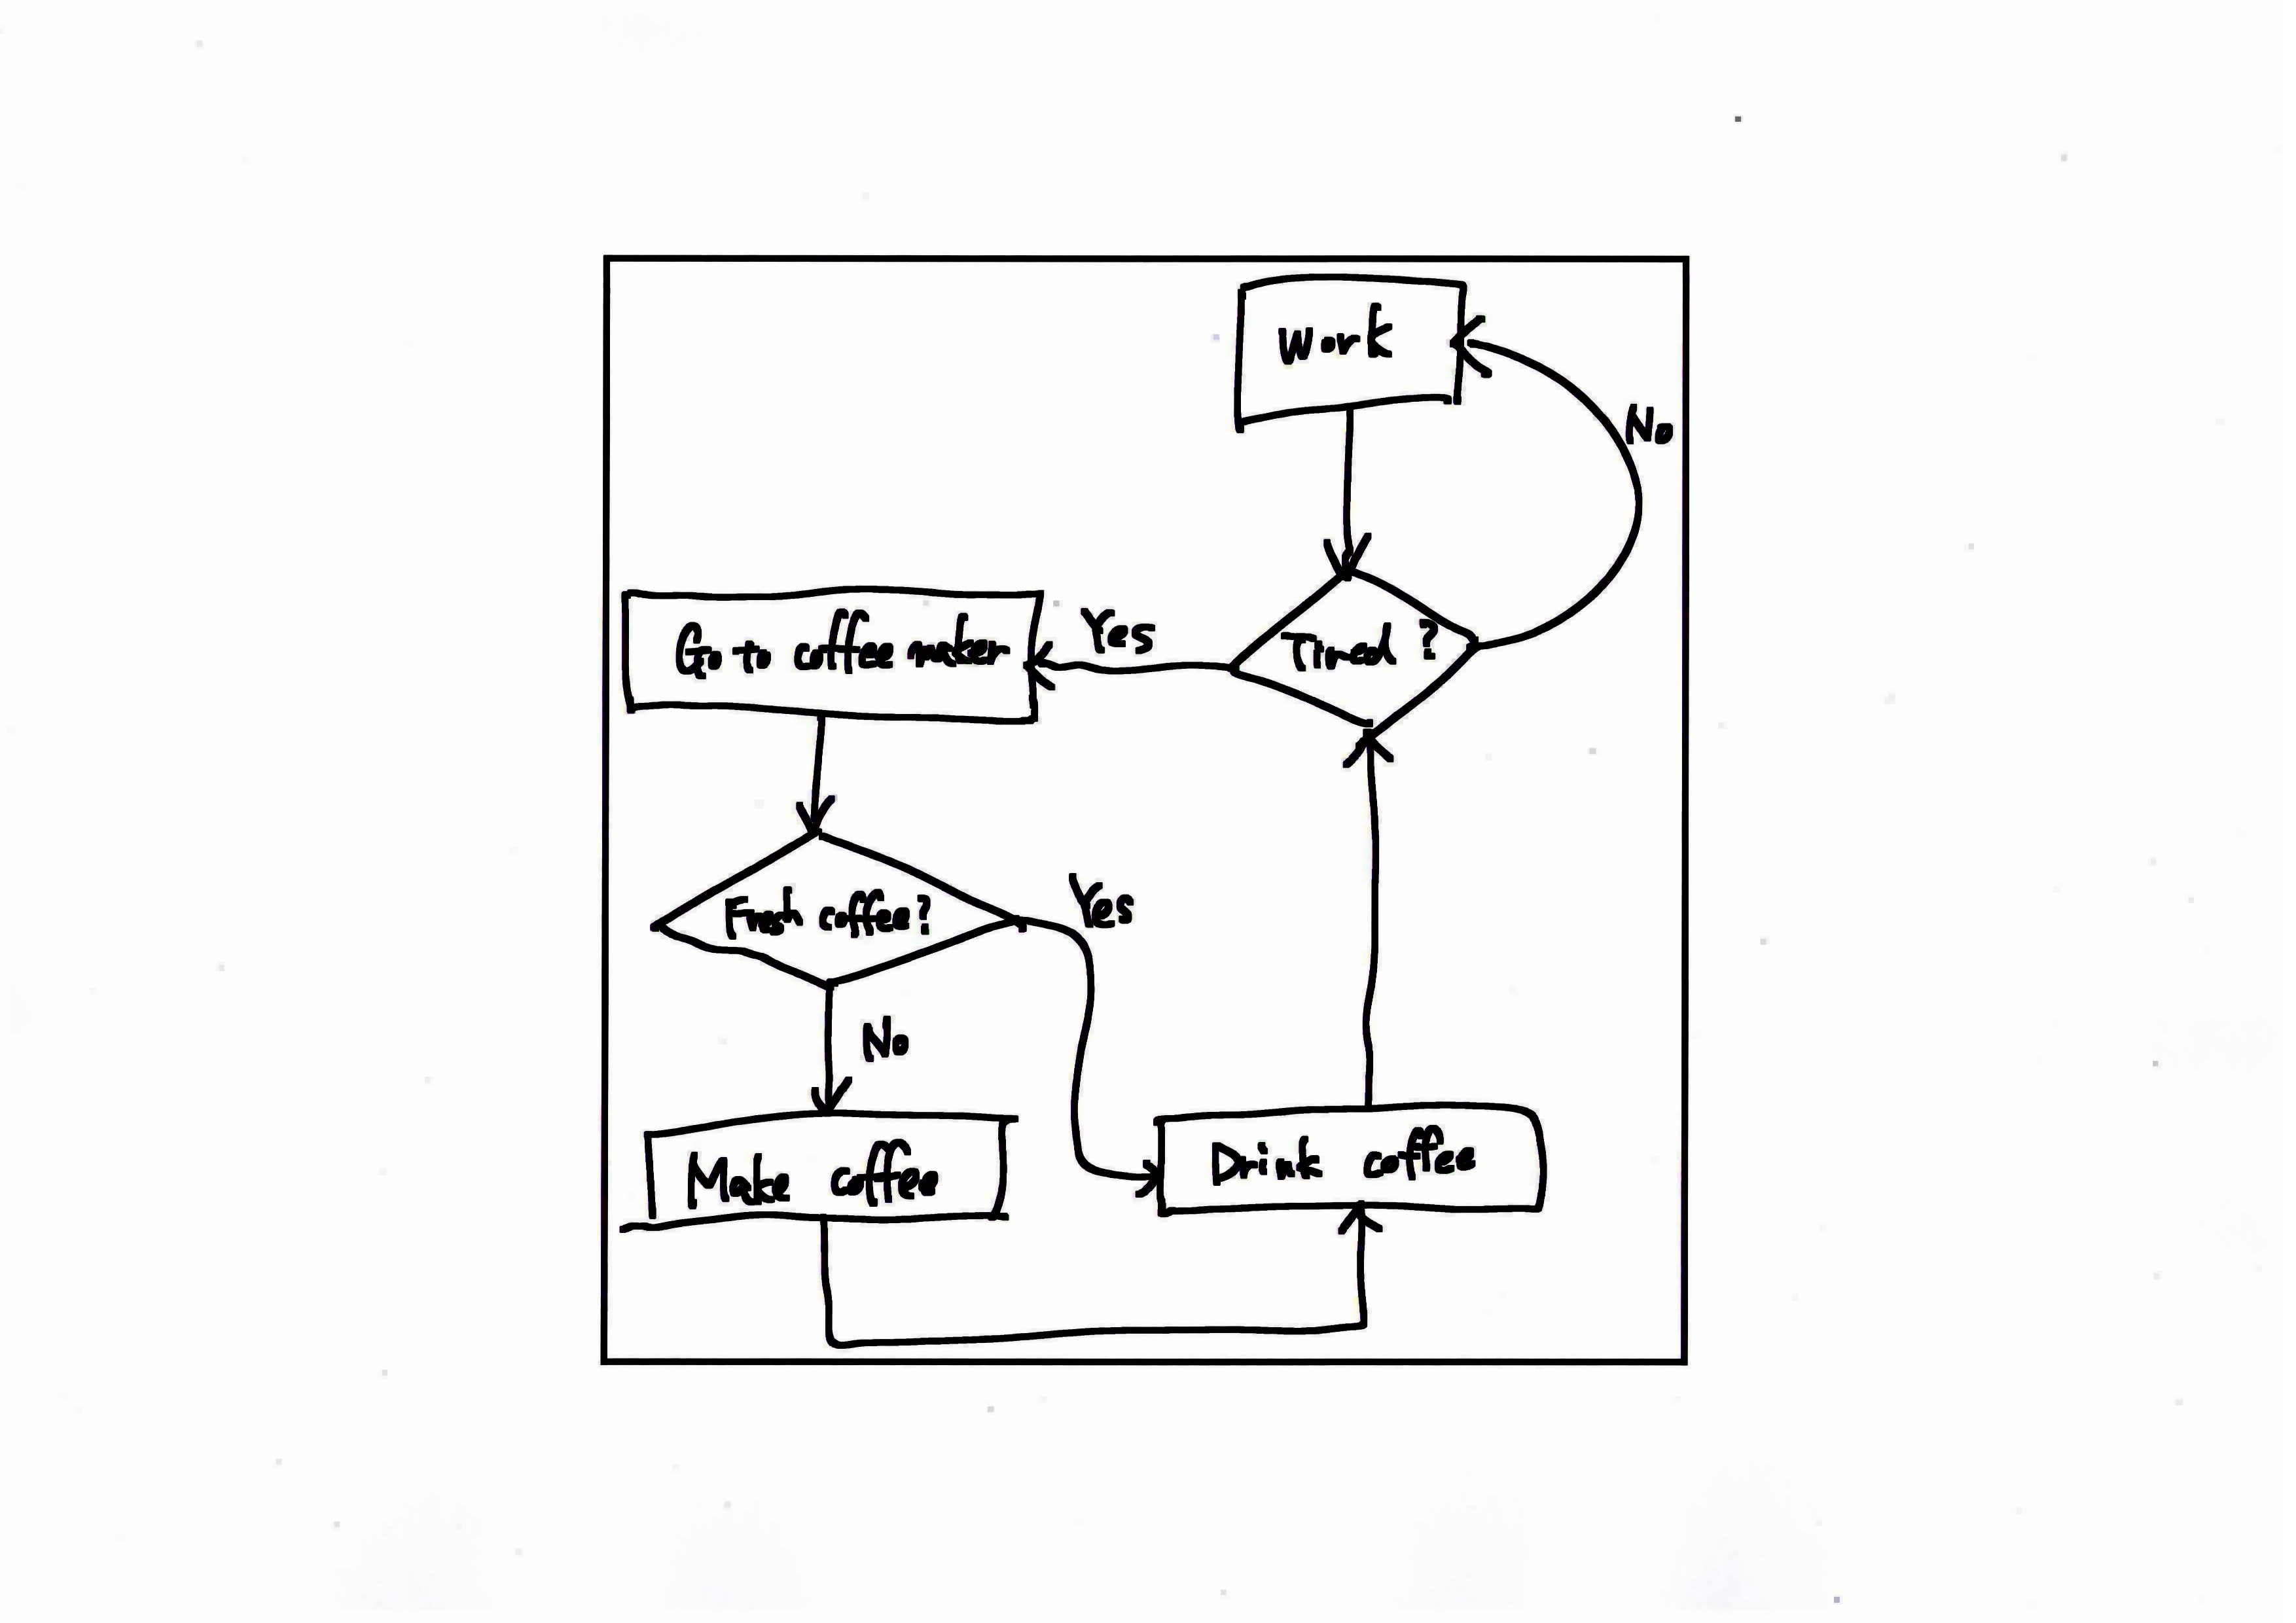 Work
No
Tired ?
Yes
Go to coffee maker
Fresh coffee?
Yes
No
Make coffee
Drink coffee